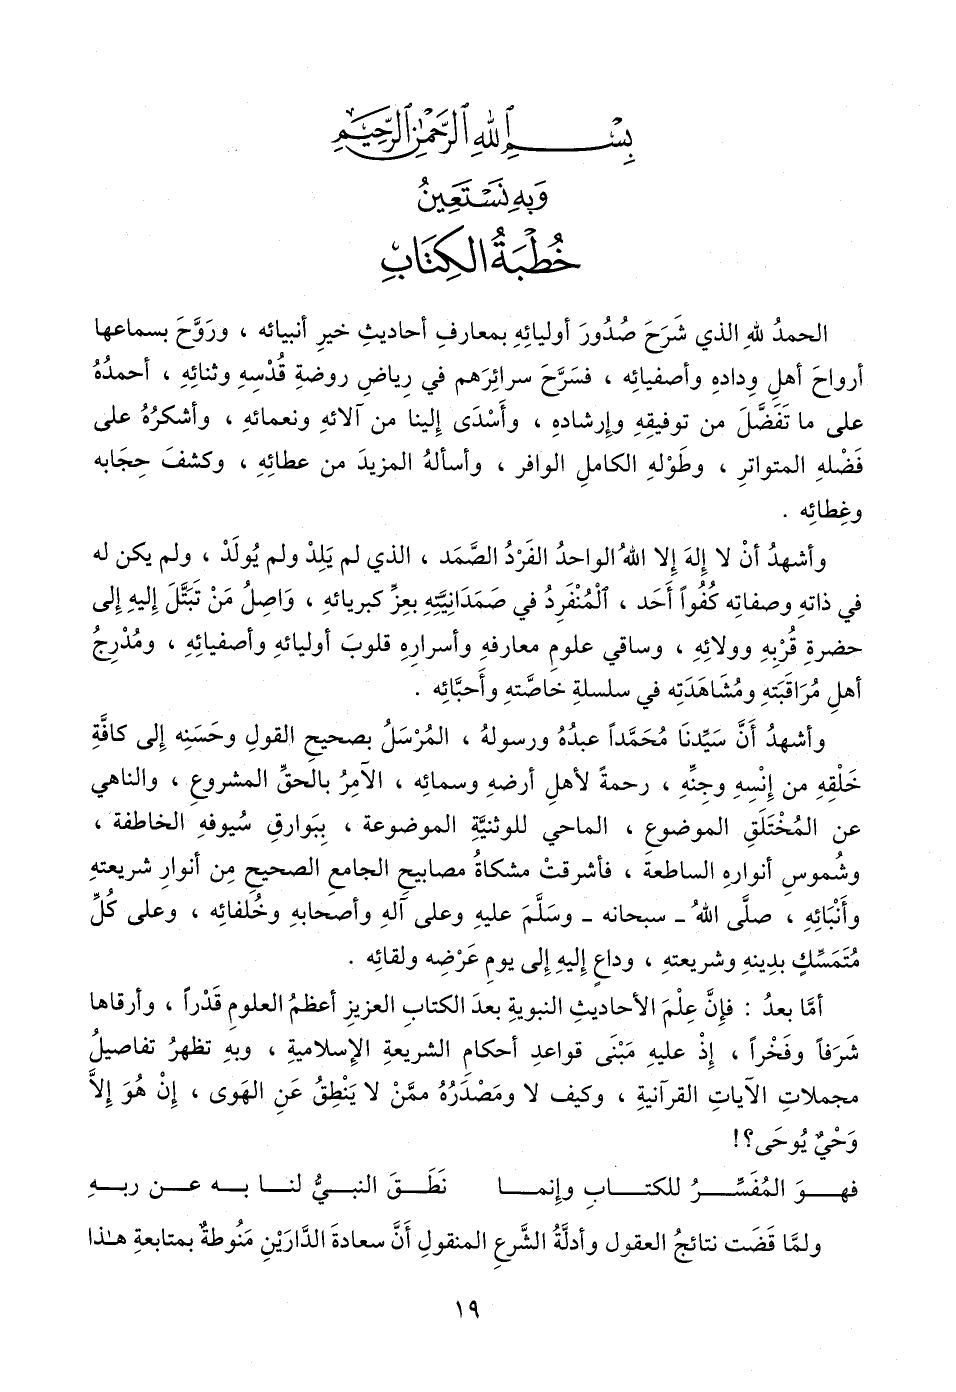 بِسْمِ اللهِ الرَّحْمٰنِ الرَّحِيمِ
وَبِهِ نَسْتَعِينُ
خُطْبَةُ الكِتَابِ
الحمدُ للهِ الذي شَرَحَ صُدُورَ أوليائِهِ بمعارفِ أحاديثِ خيرِ أنبيائه ، ورَوَّحَ بسماعها
أرواحَ أهلِ ودادِهِ وأصفيائِه ، فسَرَّحَ سرائِرَهم في رياضِ روضةِ قُدْسِهِ وثنائِهِ ، أحمدُهُ
على ما تَفَضَّلَ من توفيقِهِ وإرشادِهِ ، وأَسْدَى إلينا من آلائِهِ ونعمائِهِ ، وأشكرُهُ على
فَضْلهِ المتواترِ ، وطَوْلهِ الكاملِ الوافر ، وأسألهُ المزيدَ من عطائِهِ ، وكشفَ حِجَابه
وغِطائِه .
وأشهدُ أنْ لا إلهَ إلا اللهُ الواحدُ الفَرْدُ الصَّمَد ، الذي لم يَلِدْ ولم يُولَدْ ، ولم يكن له
في ذاتهِ وصفاتِه كُفُواً أَحَد ، اَلْمُنْفَرِدُ في صَمَدَانِيَّتِهِ بعِزِّ كبريائهِ ، وَاصِلُ مَنْ تَبَتَّلَ إليهِ إلى
حضرةِ قُرْبِهِ وولائِهِ ، وساقي علومِ معارفهِ وأسرارِهِ قلوبَ أوليائهِ وأصفيائِهِ ، ومُدْرِجُ
أهلِ مُرَاقَبَتِهِ ومُشَاهَدَتِه في سلسلةِ خاصَّتهِ وأَحبَّائِه .
وأشهدُ أَنَّ سَيِّدنَا مُحَمَّداً عبدُهُ ورسولهُ ، المُرْسَلُ بصحيحِ القولِ وحَسَنِه إلى كافَّةِ
خَلْقِهِ من إنْسِهِ وجِنِّه ، رحمةً لأهلِ أرضهِ وسمائِه ، الآمِرُ بالحقِّ المشروعِ ، والناهي
عن المُخْتَلَقِ الموضوعِ ، الماحي للوثنيَّةِ الموضوعة ، بِبَوارقِ سُيوفهِ الخاطفة ،
وشُموسِ أنوارهِ الساطعة ، فأشرقتْ مشكاةُ مصابيحِ الجامع الصحيحِ مِن أنوارِ شريعتهِ
وأَنْبَائِهِ ، صلَّى اللهُ ـ سبحانه ـ وسَلَّمَ عليهِ وعلى آلهِ وأصحابهِ وخُلفائِه ، وعلى كُلِّ
مُتَمَسِّكٍ بدِينهِ وشريعتهِ ، وداعٍ إليهِ إلى يومِ عَرْضِه ولقائِه .
أمَّا بعدُ : فإنَّ عِلْمَ الأحاديثِ النبويةِ بعدَ الكتابِ العزيزِ أعظمُ العلومِ قَدْراً ، وأرقاها
شَرَفاً وفَخْراً ، إذْ عليهِ مَبْنَى قواعدِ أحكامِ الشريعةِ الإسلاميةِ ، وبهِ تظهرُ تفاصيلُ
مجملاتِ الآياتِ القرآنيةِ ، وكيف لا ومَصْدَرُهُ ممَّنْ لا يَنْطِقُ عَنِ الهَوى ، إنْ هُوَ إلاَّ
وَحْيٌ يُوحَى؟!
فهوَ المُفَسِّرُ للكتابِ وإنما نَطَقَ النبيُّ لنا به عن ربهِ
ولمَّا قَضَت نتائجُ العقول وأدلَّةُ الشَّرعِ المنقولِ أنَّ سعادةَ الدَّارَيْنِ مَنُوطةٌ بمتابعةِ هذا
١٩